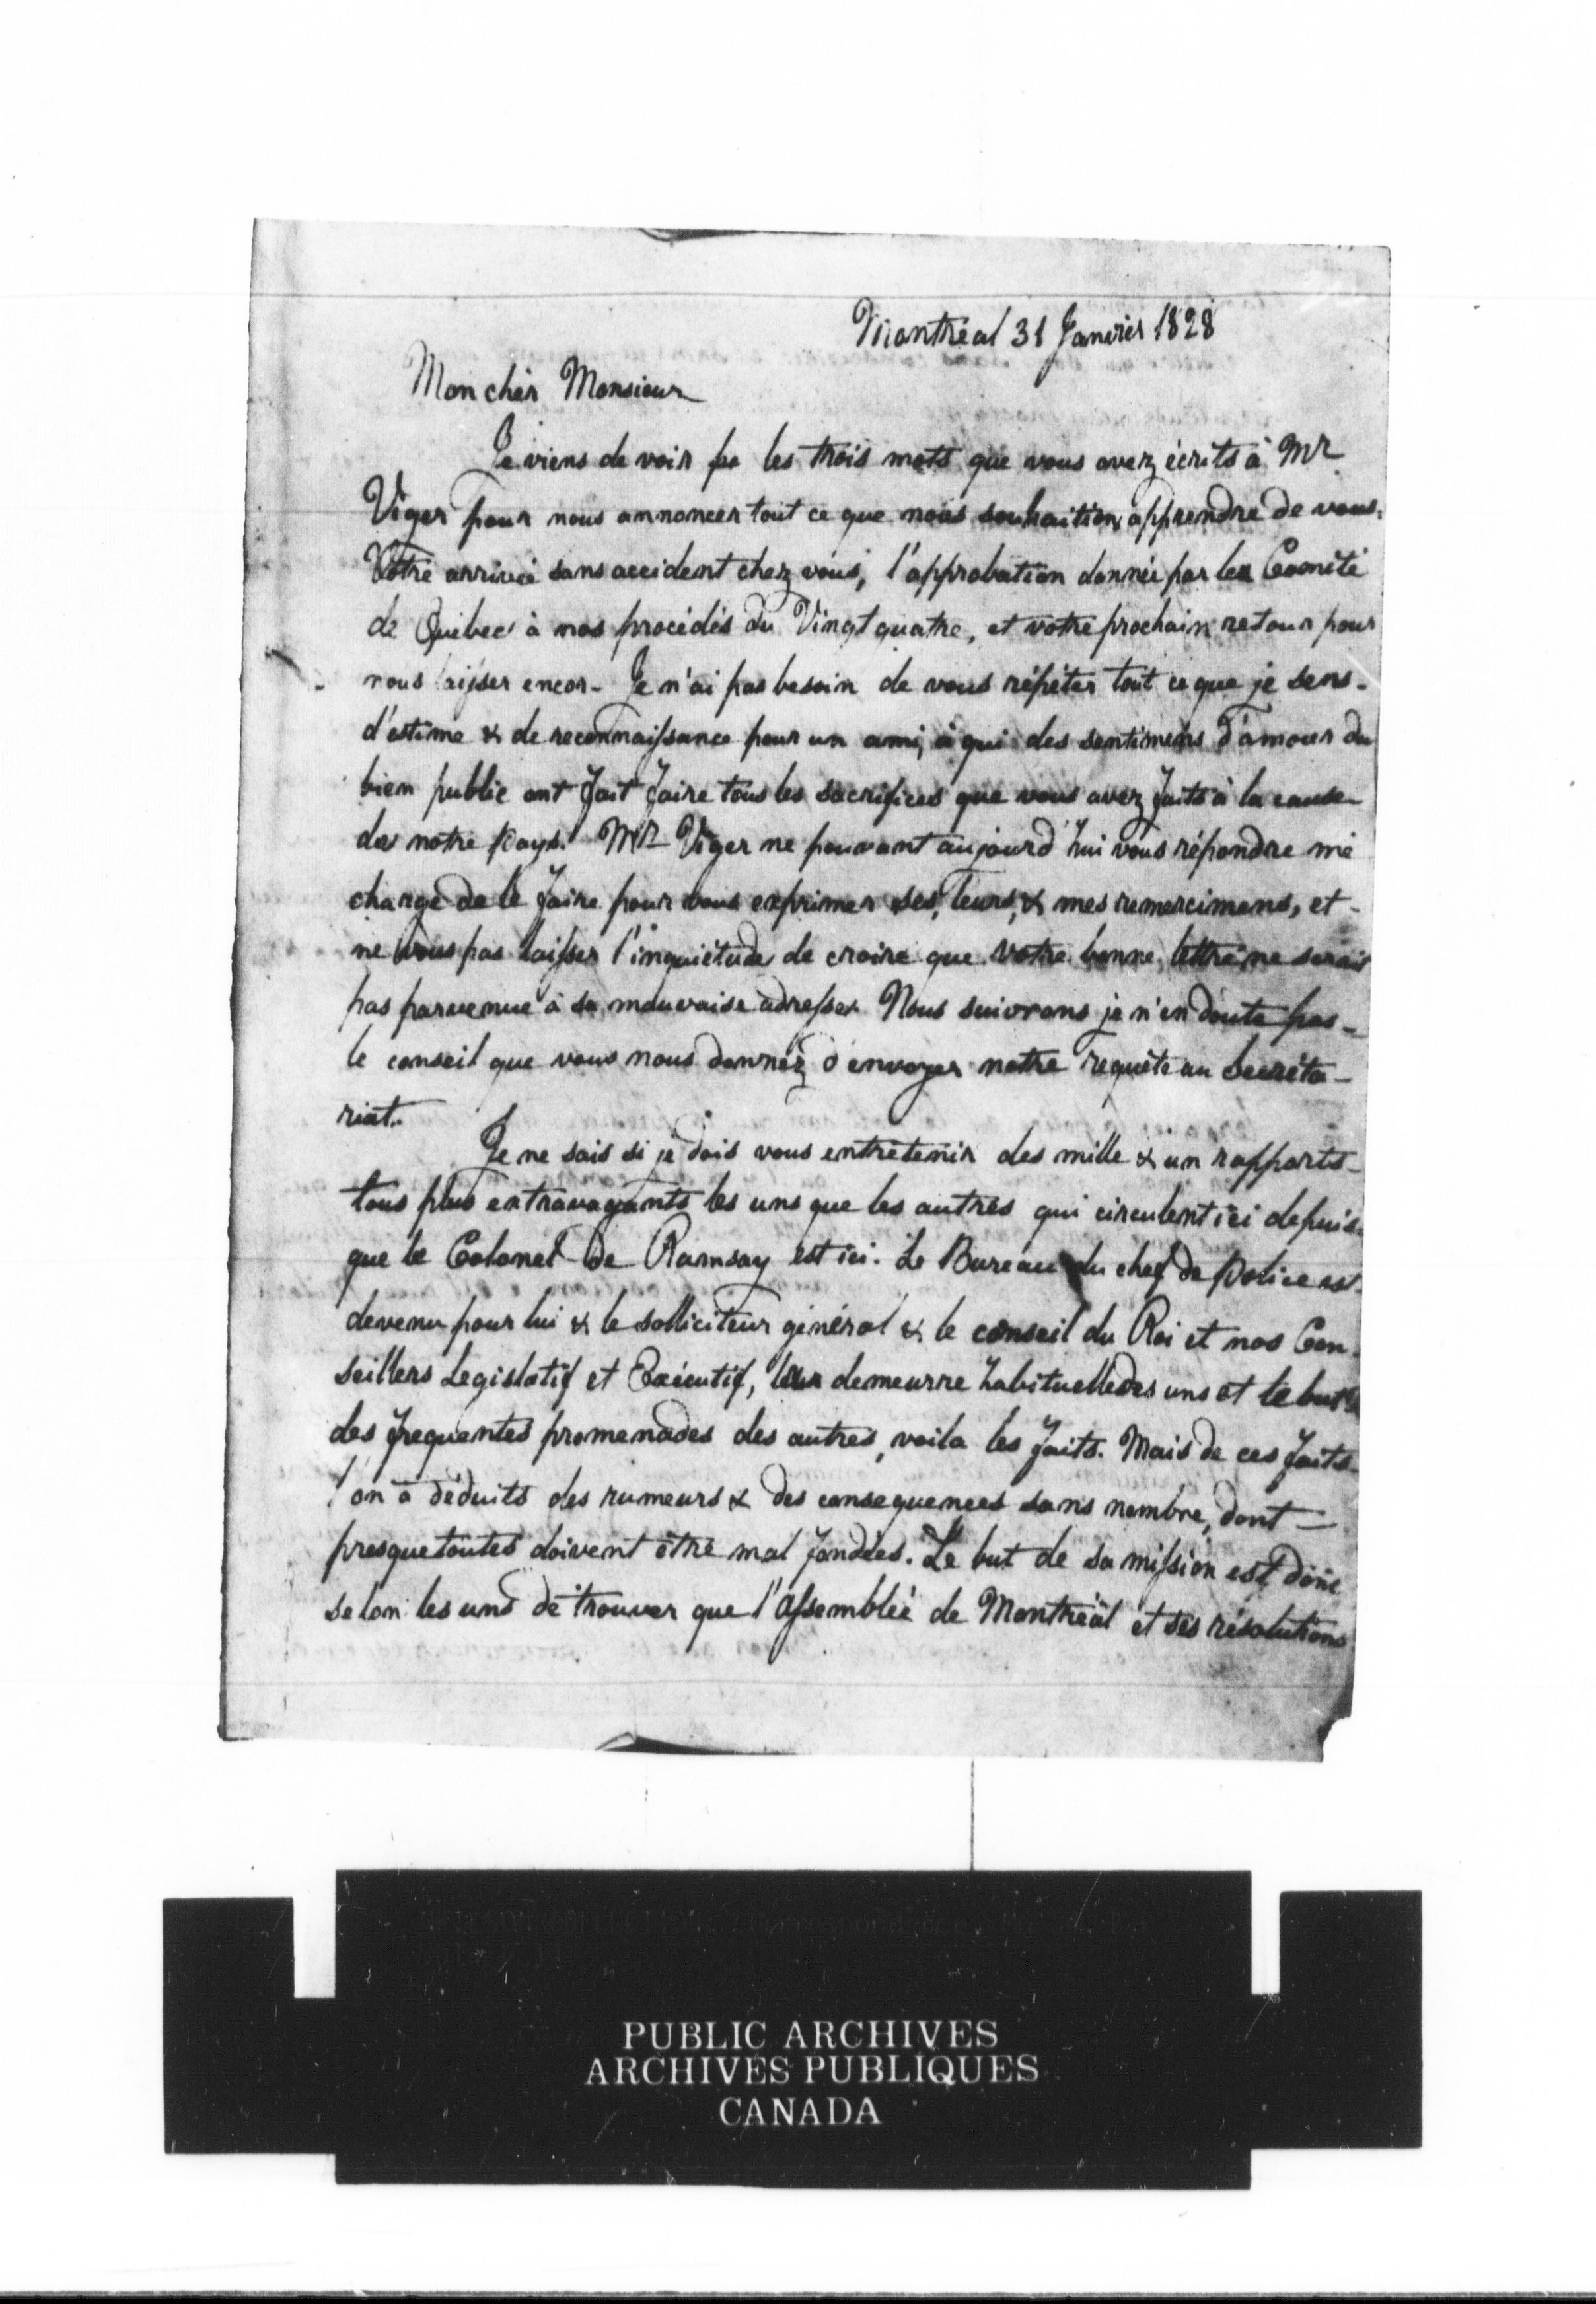 Montréal 31 Janvier 1828
Mon cher Monsieur
Je viens de voir pa les trois mots que vous avez écrits à Mr
Viger pour nous annoncer tout ce que nous souhaition apprendre de vous.
Votre arrivée sans accident chez vous, l'approbation donnée par le Comité
de Québec à nos procédés du Vingt quatre, et votre prochain retour pour
nous laisser encor - Je n'ai pas besoin de vous répéter tout ce que je sens -
d'estime & de reconnaissance pour un ami, à qui des sentimens d'amour du
bien public ont fait faire tous les sacrifices que vous avez faits à la cause
de notre pays. Mr Viger ne pouvant aujourd'hui vous répondre me
charge de le faire pour vous exprimer ses, leurs, & mes remercimens, et -
ne vous pas laisser l'inquiétude de croire que votre bonne lettre ne serait
pas parvenue à sa mauvaise adresse. Nous suivrons je n'en doute pas -
le conseil que vous nous donnez d'envoyer notre requête au Secréta-
riat.
Je ne sais si je dois vous entretenir des mille & un rapports -
tous plus extravagants les uns que les autres qui circulent ici depuis
que le Colonel de Ramsay est ici. Le Bureau du chef de Police est
devenu pour lui & le solliciteur général & le conseil du Roi et nos Con-
seillers Legislatif et Exécutif, la demeurre habituelle des uns et le but
des frequentes promenades des autres, voila les faits. Mais de ces faits
l'on a déduits des rumeurs & des consequences sans nombre, dont -
presque toutes doivent être mal fondées. Le but de sa mission est donc
selon les uns de trouver que l'Assemblée de Montréal et ses résolutions
PUBLIC ARCHIVES
ARCHIVES PUBLIQUES
CANADA